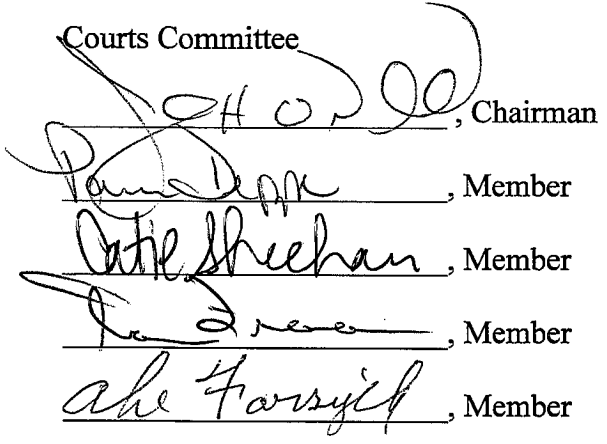 Courts Committee
, Chairman
Pam Deppe, Member
Catie Sheehan, Member
, Member
Abe Forsyth, Member